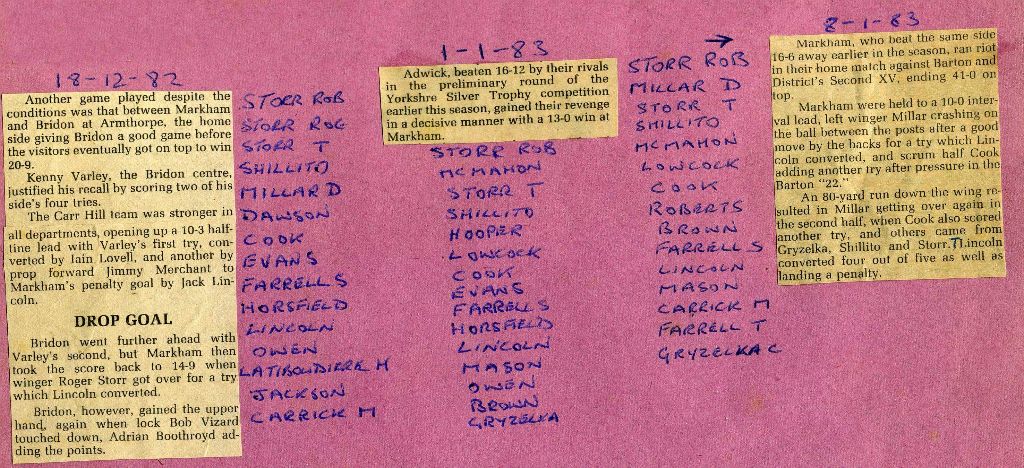 18-12-82
Another game played despite the
conditions was that between Markham
and Bridon at Armthorpe, the home
side giving Bridon a good game before
the visitors eventually got on top to win
20-9.
Kenny Varley, the Bridon centre,
justified his recall by scoring two of his
side's four tries.
The Carr Hill team was stronger in
all departments, opening up a 10-3 half-
time lead with Varley's first try, con-
verted by Iain Lovell, and another by
prop forward Jimmy Merchant to
Markham's penalty goal by Jack Lin-
coln.
DROP GOAL
Bridon went further ahead with
Varley's second, but Markham then
took the score back to 14-9 when
winger Roger Storr got over for a try
which Lincoln converted.
Bridon, however, gained the upper
hand, again when lock Bob Vizard
touched down, Adrian Boothroyd ad-
ding the points.
STORR ROB
STORR ROG
STORR T
SHILLITO
MILLAR D
DAWSON
COOK
EVANS
FARRELL S
HORSFIELD
LINCOLN
OWEN
LATIBOUDIERE M
JACKSON
CARRICK M
1-1-83
Adwick, beaten 16-12 by their rivals
in the preliminary round of the
Yorkshire Silver Trophy competition
earlier this season, gained their revenge
in a decisive manner with a 13-0 win at
Markham.
STORR ROB
MCMAHON
STORR T
SHILLITO
HOOPER
LOWCOCK
COOK
EVANS
FARRELL S
HORSFIELD
LINCOLN
MASON
OWEN
BROWN
GRYZELKA
→
STORR ROB
MILLAR D
STORR T
SHILLITO
MCMAHON
LOWCOCK
COOK
ROBERTS
BROWN
FARRELL S
LINCOLN
MASON
CARRICK M
FARRELL T
GRYZELKA C
8-1-83
Markham, who beat the same side
16-6 away earlier in the season, ran riot
in their home match against Barton and
District's Second XV, ending 41-0 on
top.
Markham were held to a 10-0 inter-
val lead, left winger Millar crashing on
the ball between the posts after a good
move by the backs for a try which Lin-
coln converted, and scrum half Cook
adding another try after pressure in the
Barton "22."
An 80-yard run down the wing re-
sulted in Millar getting over again in
the second half, when Cook also scored
another try, and others came from
Gryzelka, Shillito and Storr.T Lincoln
converted four out of five as well as
landing a penalty.